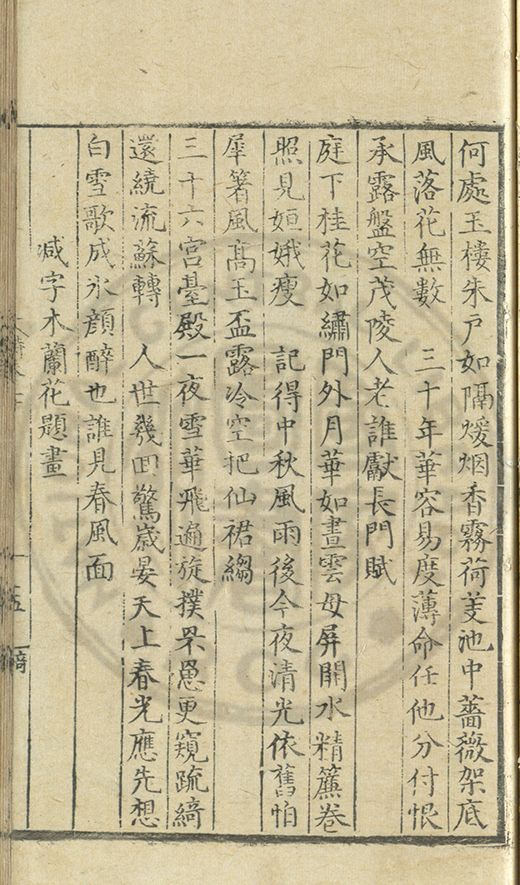 何處玉樓朱戶如隔煖烟香霧荷芰池中薔薇架底
風落花無數　三十年華容易度薄命任他分付恨
承露盤空茂陵人老誰獻長門賦
庭下桂花如繡門外月華如晝雲母屏開水精簾卷
照見姮娥瘦　記得中秋風雨後今夜清光依舊怕
犀箸風高玉盃露冷空把仙裙縐
三十六宮臺殿一夜雪華飛遍旋撲罘罳更窺疏綺
還繞流蘇轉　人世幾回驚歲晏天上春光應先想
白雪歌成氷顏醉也誰見春風面
減字木蘭花題畫